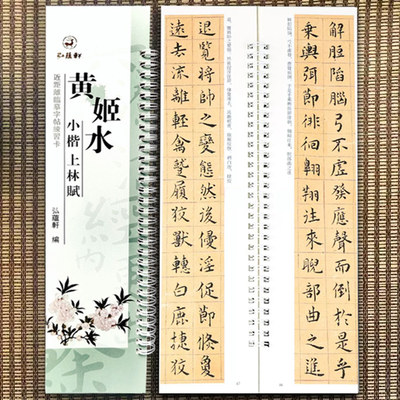 弘蘊軒
近距離臨摹字帖練習卡
黄姬水
小楷上林賦
弘蘊軒 编
解脰陷腦弓不虛發應聲而倒於是乎
乘輿弭節徘徊翱翔往來睨部曲之進
退覽將帥之變態然後侵淫促節儵夐
遠去流離輕禽蹵履狡獸轊白鹿捷狡